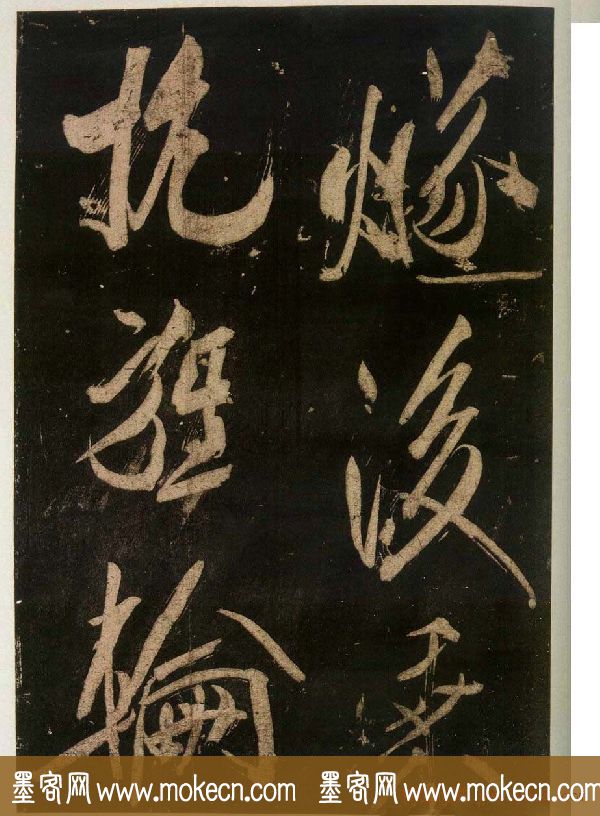 燧後
抗旌輪
墨客网 www.mokecn.com 墨客网 www.mokecn.com